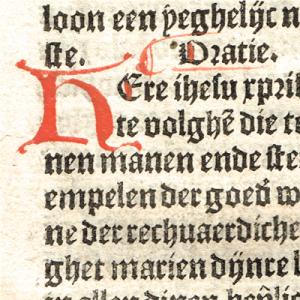 loon een yeghelijc n
ste. Oratie.
HEre ihesu xpri
te volghē die te
nen manen ende ste
empelen der goed w
ne der rechuaerdiche
ghet marien dijnre l
in allen dinen